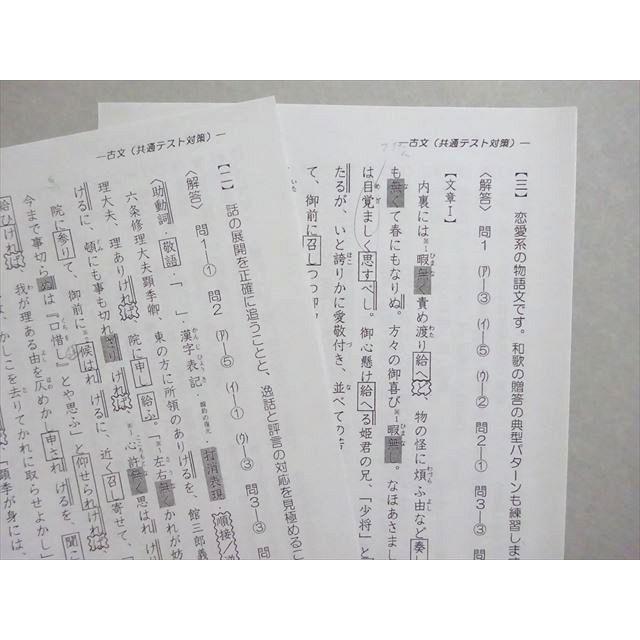 ―古文（共通テスト対策）―
【三】 恋愛系の物語文です。和歌の贈答の典型パターンも練習しま
〈解答〉 問1 (ア)―③ (イ)―⑤ (ウ)―② 問2―① 問3―③ 問
【文章Ⅰ】
内裏には※1暇無く責め渡り給へど、物の怪に煩ふ由など奏し
も無くて春にもなりぬ。方々の御喜び※1暇無し。なほあさまし
は目覚ましく思すべし。御心懸け給へる姫君の兄、「少将」と
たるが、いと誇りかに愛敬付き、並べての
て、御前に召しつつ
―古文（共通テスト対策）―
【二】 話の展開を正確に追うことと、逸話と評言の対応を見極めるこ
〈解答〉 問1―① 問2 (ア)―⑤ (イ)―① (ウ)―③ 問3―③ 問
〈助動詞・敬語・「 」・漢字表記・打消表現・順接／逆
六条修理大夫顕季卿、東の方に所領のありけるを、館三郎義
理大夫、理ありければ、院に申し給ふ。「※1左右無くかれが妨
けるに、頓にも事も切れざりければ、※1心許無く思はれけり
院に参りて、御前に候はれけるに、近く召し寄せて、
今まで事切らぬは『口惜し』とや思ふ」と仰せられければ
我が理ある由を仄めかし申されけるを、聞こ
かしこを去りてかれに取らせよかし」
給ひければ
「顕季が身には、